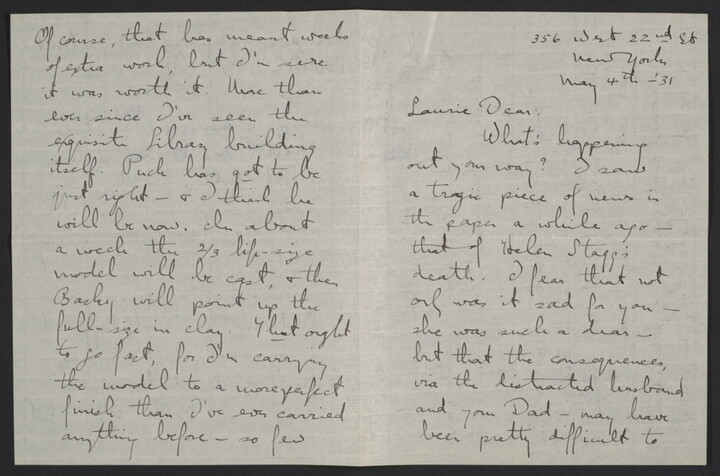 356 West 22nd St
New York
May 4th - '31
Laurie Dear:
What's happening
out your way? I saw
a tragic piece of news in
the paper a while ago —
that of Helen Stagg's
death. I fear that not
only was it sad for you —
she was such a dear —
but that the consequences,
via the distracted husband
and your Dad — may have
been pretty difficult to
Of course, that has meant weeks
of extra work, but I'm sure
it was worth it. More than
ever since I've seen the
exquisite Library building
itself. Puck has got to be
just right — & I think he
will be now. In about
a week the 2/3 life-size
model will be cast, & then
will point up the
full-size in clay. That ought
to go fast, for I'm carrying
the model to a more perfect
finish than I've ever carried
anything before — so few